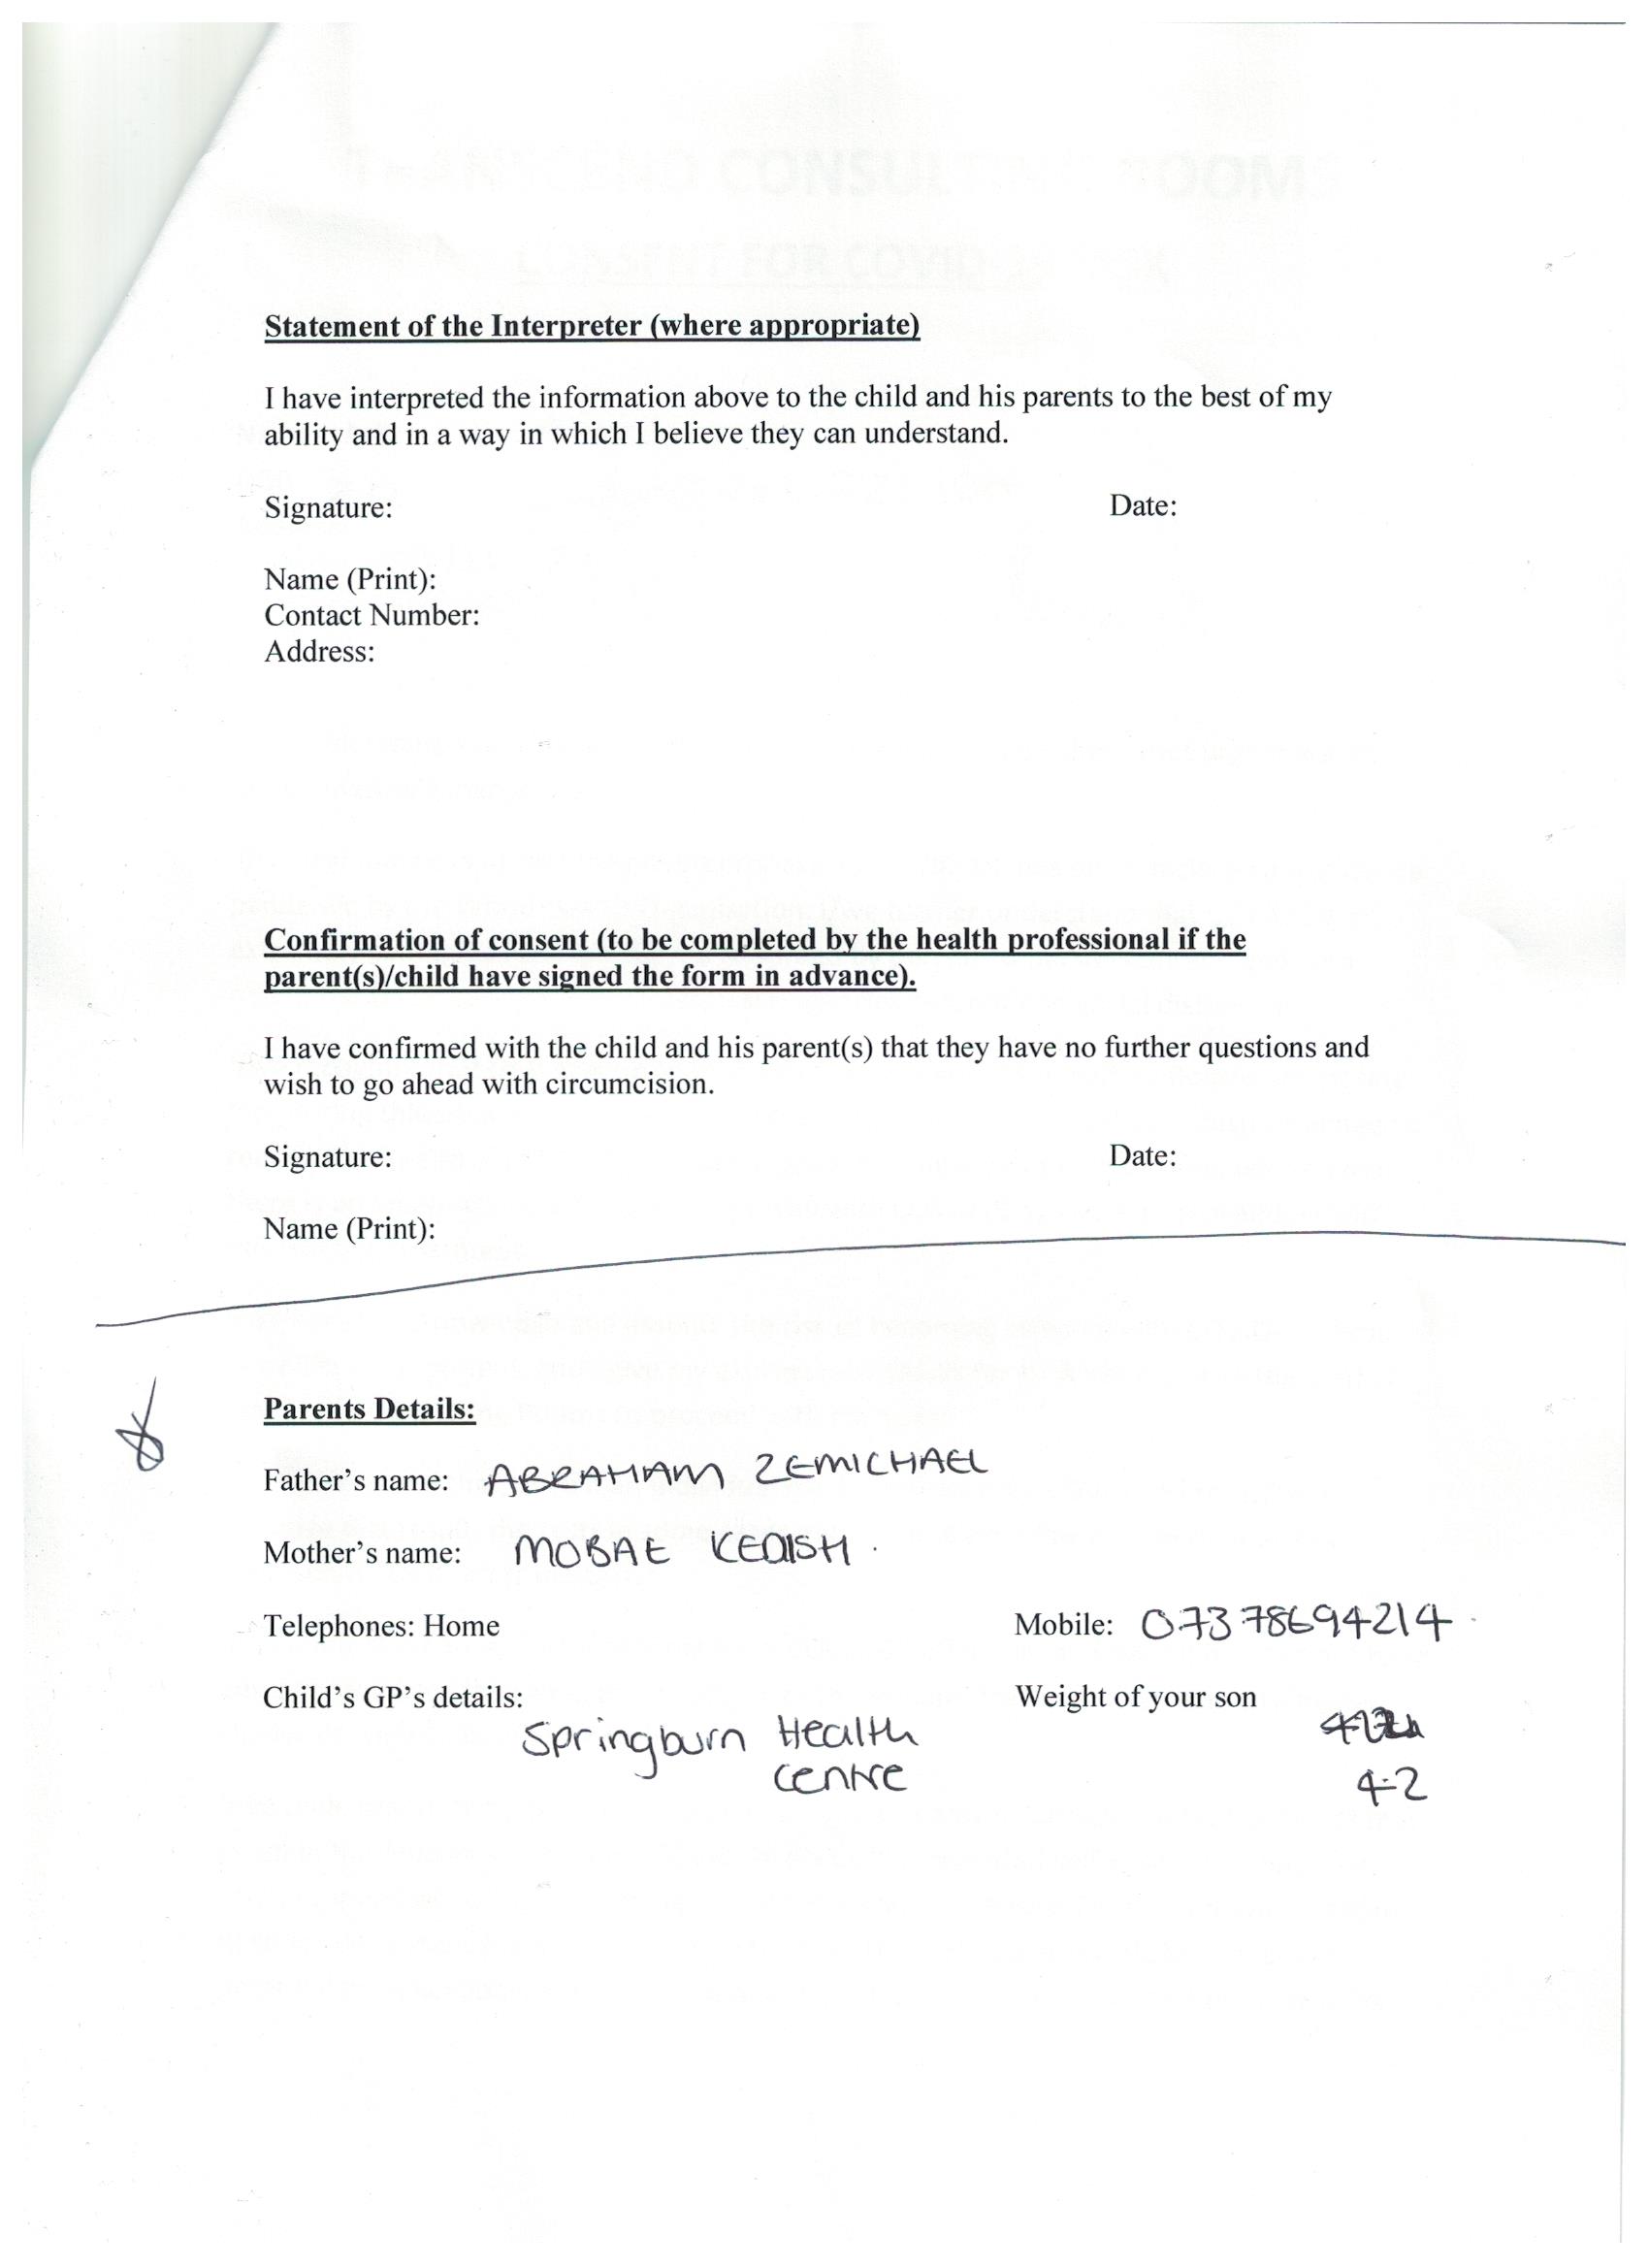 CONSENT FOR COVID
Statement of the Interpreter (where appropriate)
I have interpreted the information above to the child and his parents to the best of my
ability and in a way in which I believe they can understand.
Signature: Date:
Name (Print):
Contact Number:
Address:
Confirmation of consent (to be completed by the health professional if the
parent(s)/child have signed the form in advance).
I have confirmed with the child and his parent(s) that they have no further questions and
wish to go ahead with circumcision.
Signature: Date:
Name (Print):
Parents Details:
Father's name: ABRAHAM ZEMICHAEL
Mother's name: MOBAE KEDISH.
Telephones: Home Mobile: 07378694214
Child's GP's details: Weight of your son
Springburn Health
Centre 4.2